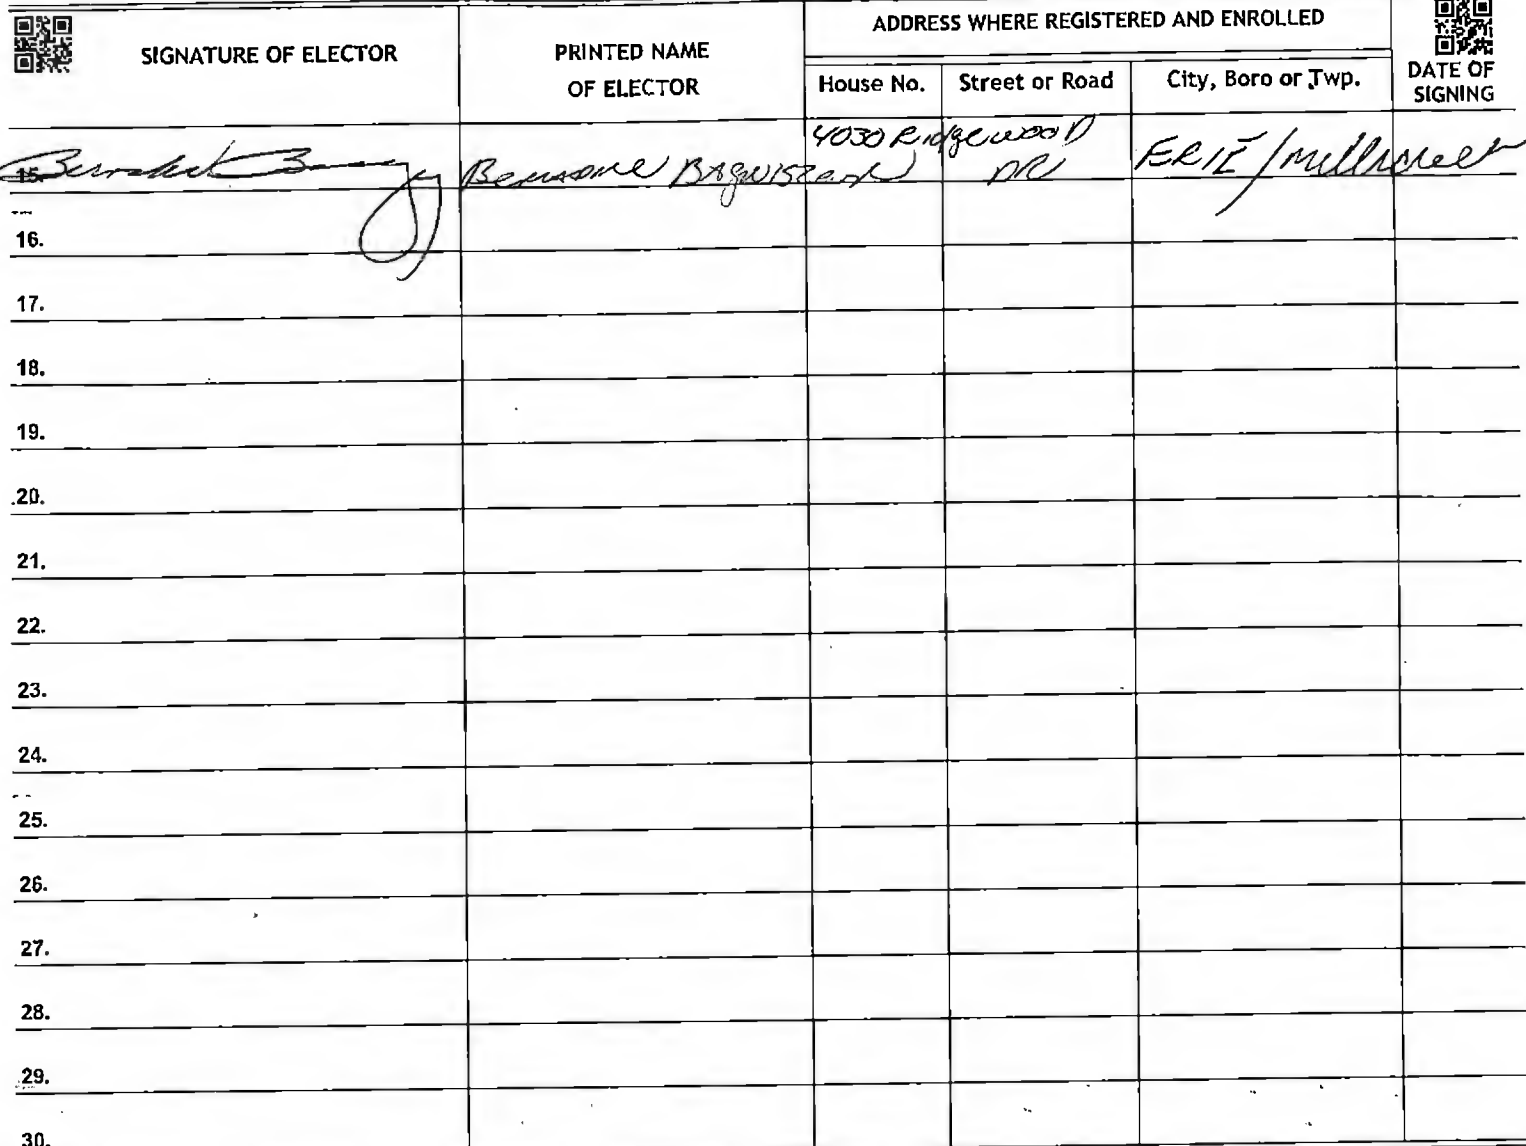 ADDRESS WHERE REGISTERED AND ENROLLED
SIGNATURE OF ELECTOR
PRINTED NAME
OF ELECTOR
House No.
Street or Road
City, Boro or Twp.
DATE OF
SIGNING
15.
4030 Ridgewood
DR
ERIE/millcreek
16.
17.
18.
19.
20.
21.
22.
23.
24.
25.
26.
27.
28.
29.
30.